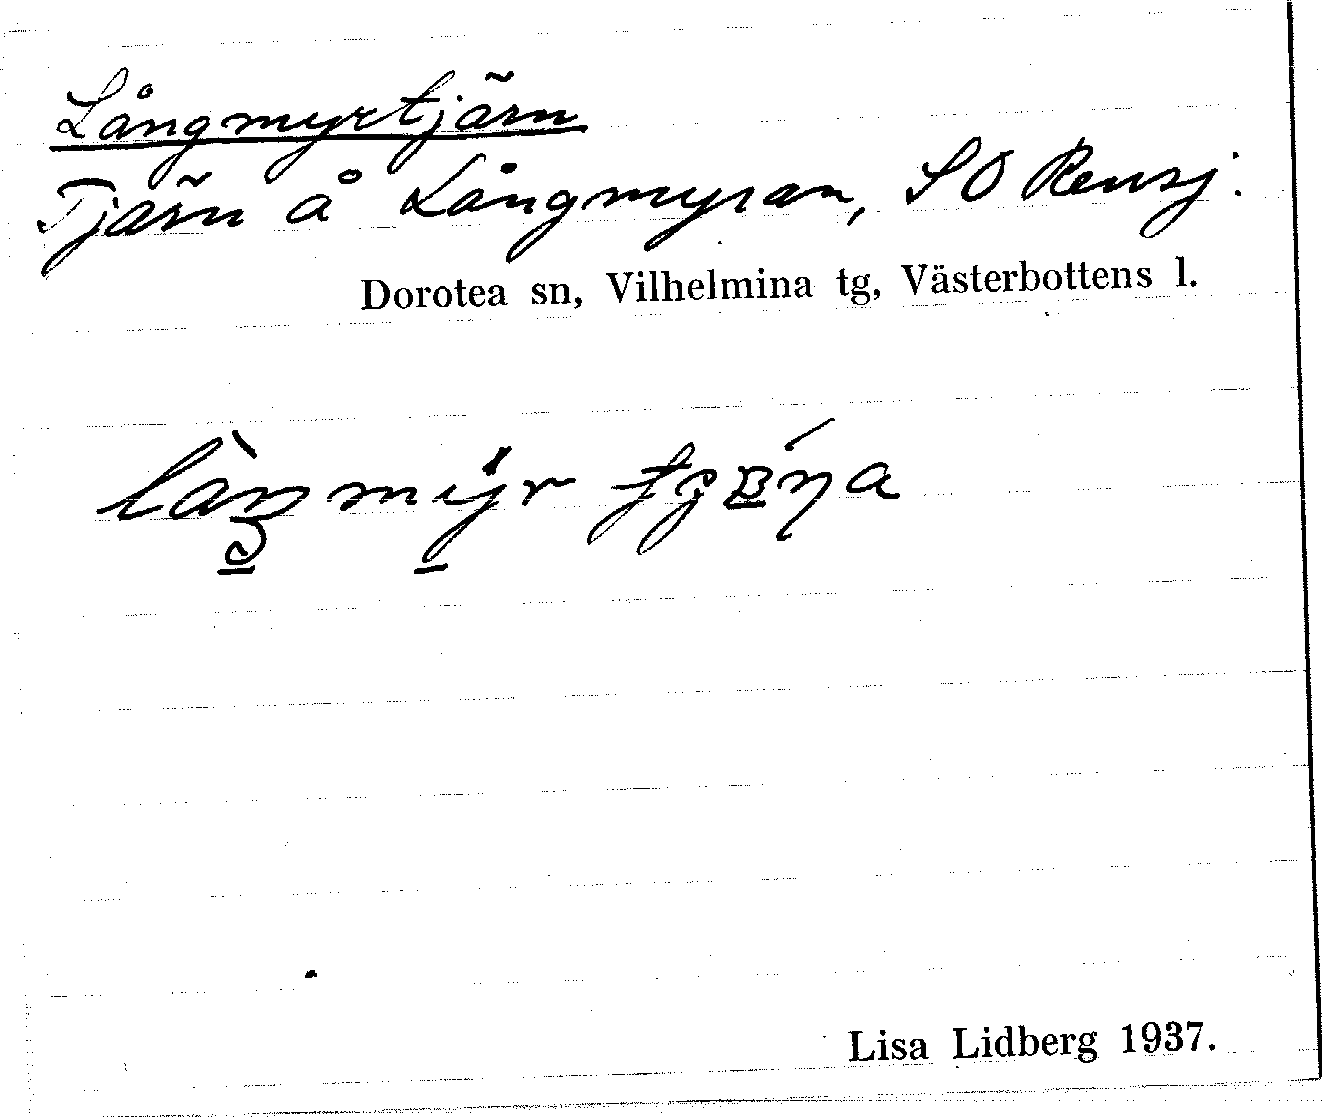 Långmyrtjärn
Tjärn å Långmyran, SO Rensj.
Dorotea sn, Vilhelmina tg, Västerbottens l.
Lisa Lidberg 1937.